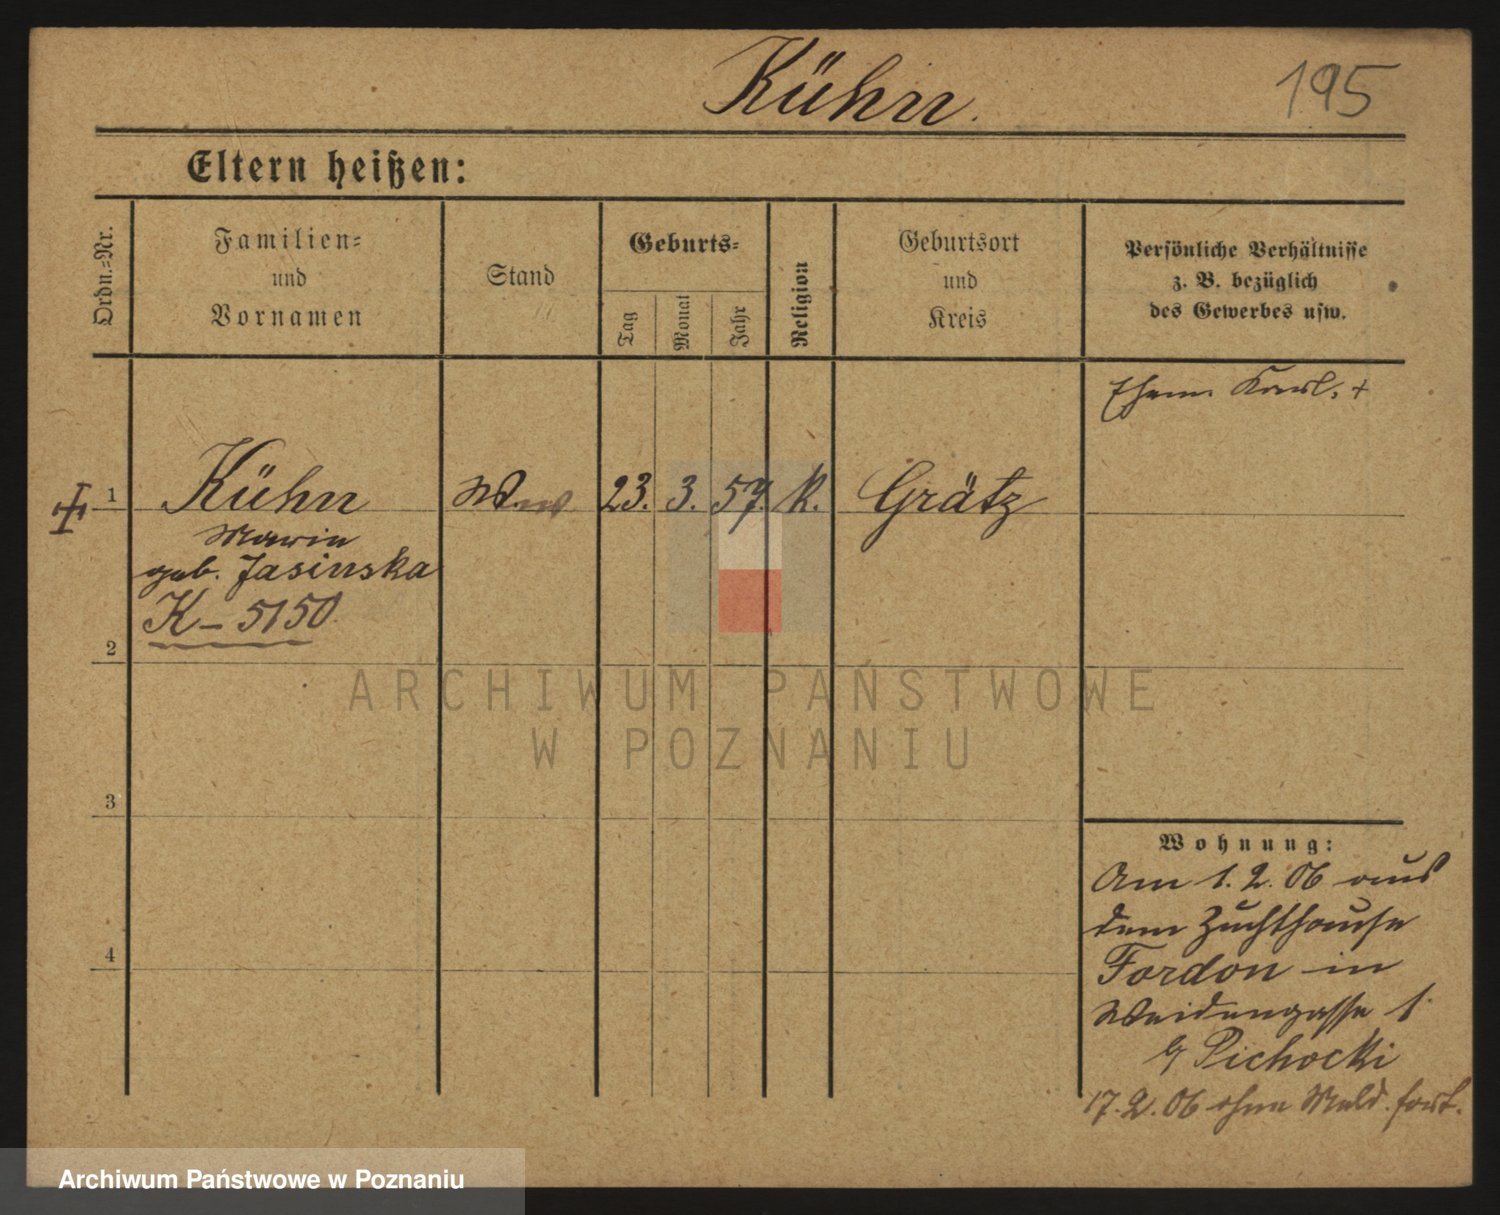 Kühn.
195
Eltern heißen:
Ordn.-Nr.
Familien-
und
Vornamen
Stand
Geburts-
Tag
Monat
Jahr
Religion
Geburtsort
und
Kreis
Persönliche Verhältnisse
z. B. bezüglich
des Gewerbes usw.
Ehem. Karl. +
1 Kühn Wwe 23. 3. 57. k. Grätz
Marie
geb. Jasinska
K – 5150
2
ARCHIWUM PAŃSTWOWE
W POZNANIU
3
Wohnung:
Am 1. 2. 06 aus
dem Zuchthause
4
Fordon in
Weidengasse 1
b/ Pichocki
17. 2. 06 ohne Meld. fort.
Archiwum Państwowe w Poznaniu